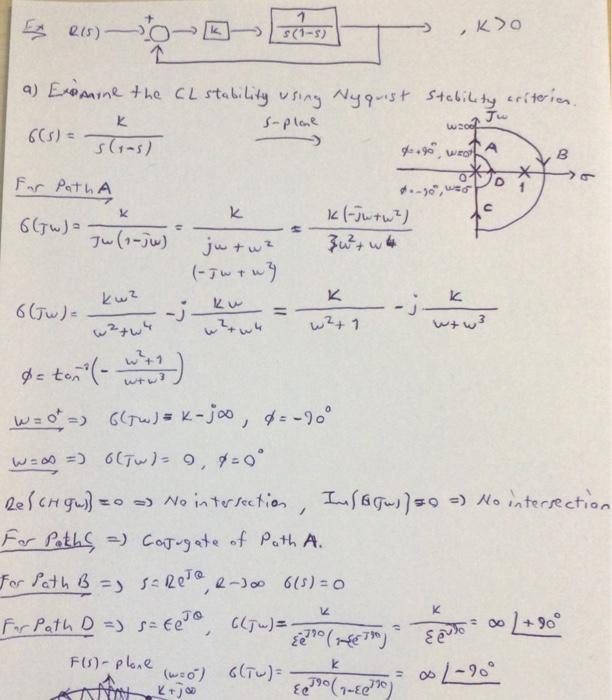 Ex R(s) + - K 1/s(1-s) , K>0
a) Examine the CL stability using Nyquist Stability criterion.
G(s) = K/s(1-s) s-plane Jw
w=∞ A B
ϕ=+90°, w=0⁺
0 D 1 σ
ϕ=-90°, w=0⁻
C
For Path A
G(Jw) = K/Jw(1-jw) = K/jw+w² (-Jw+w²) = K(-jw+w²)/w²+w⁴
G(Jw) = Kw²/w²+w⁴ - j Kw/w²+w⁴ = K/w²+1 - j K/w+w³
ϕ = tan⁻¹(- w²+1/w+w³)
w=0⁺ => G(Jw) = K-j∞, ϕ=-90°
w=∞ => G(Jw) = 0, ϕ=0°
Re{GH(jw)}=0 => No intersection, Im{G(Jw)}=0 => No intersection
For Path C => Conjugate of Path A.
For Path B => s=Re^Jθ, R→∞ G(s)=0
For Path D => s=ϵe^Jθ, G(Jw) = K/εe^-J90(1-εe^-J90) = K/εe^-J90 = ∞ ∠+90°
F(s)-plane (w=0⁻) G(Jw) = K/εe^J90(1-εe^J90) = ∞ ∠-90°
K+j∞